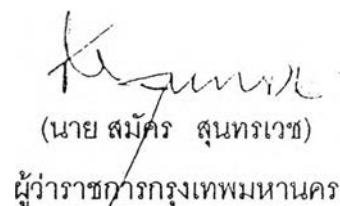 (นาย สมัคร สุนทรเวช)
ผู้ว่าราชการกรุงเทพมหานคร